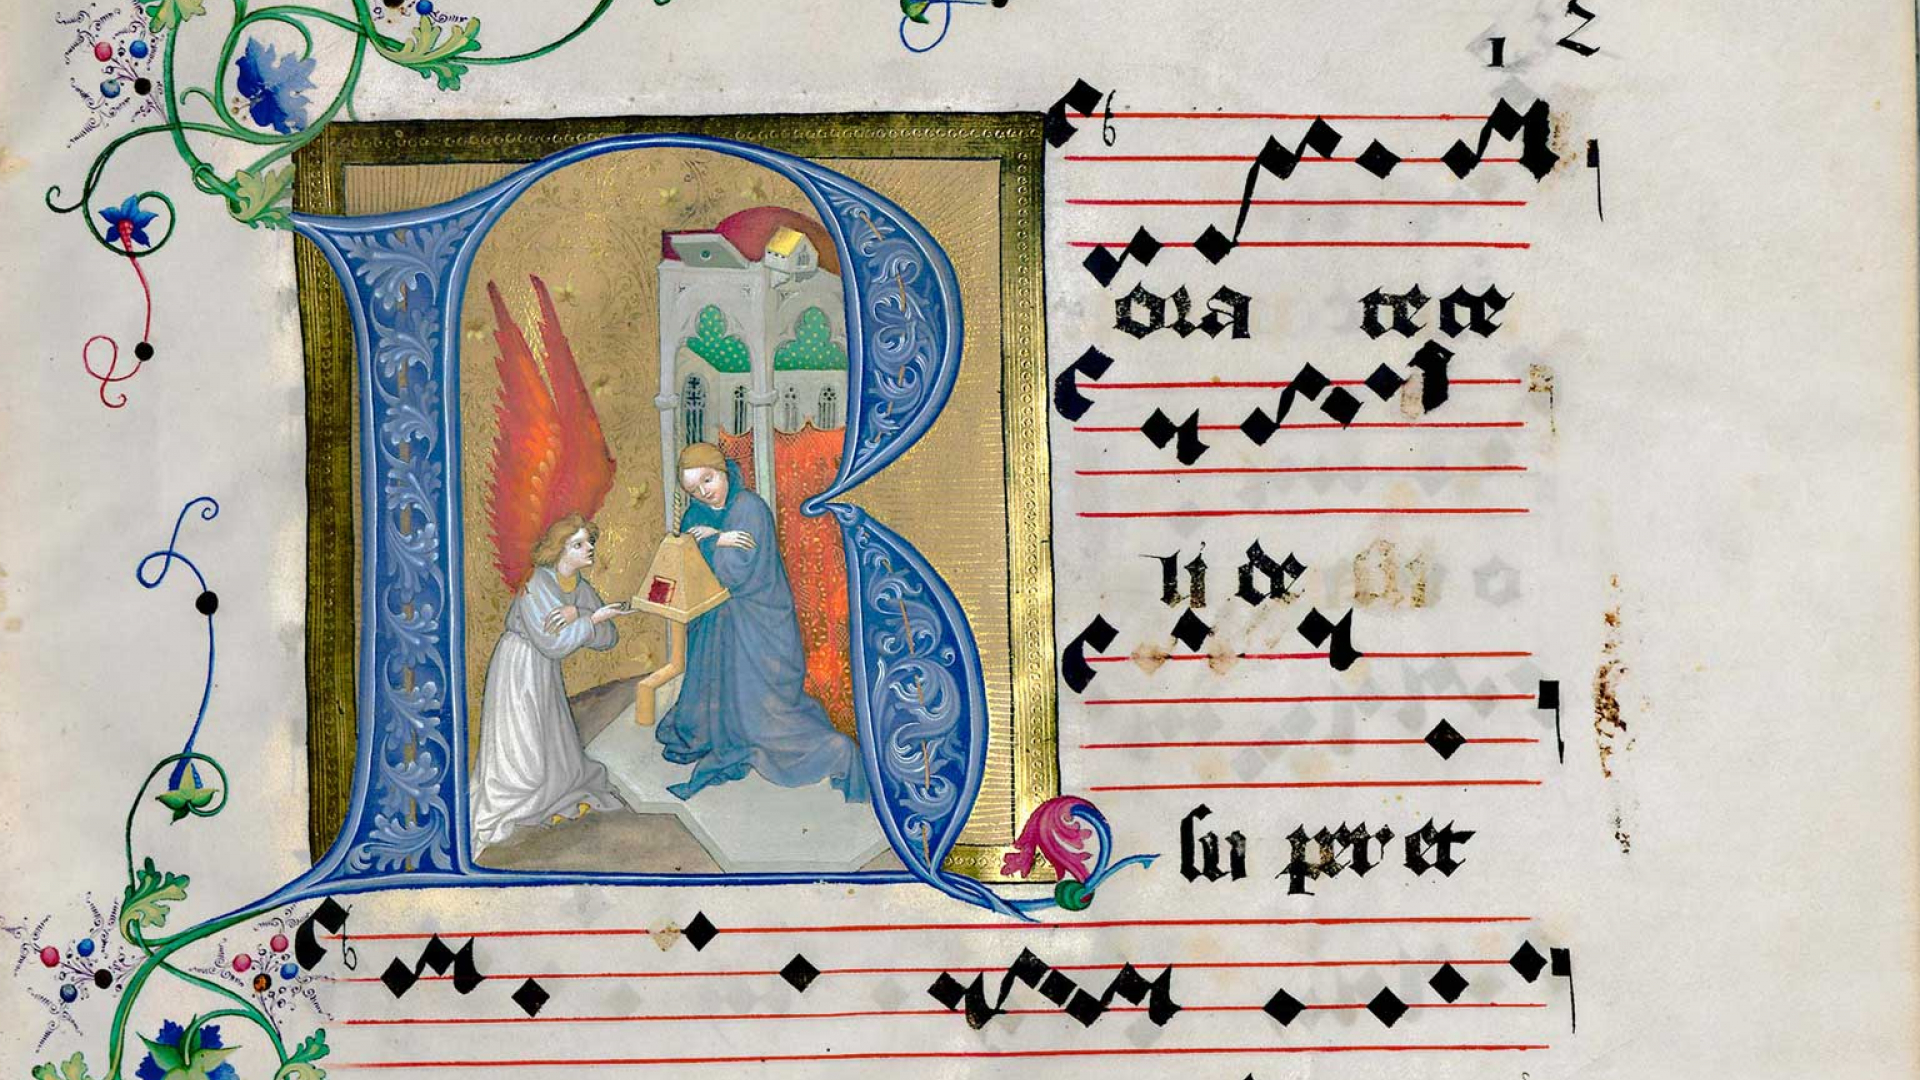 1 2
R ora te ce
li de
su per et